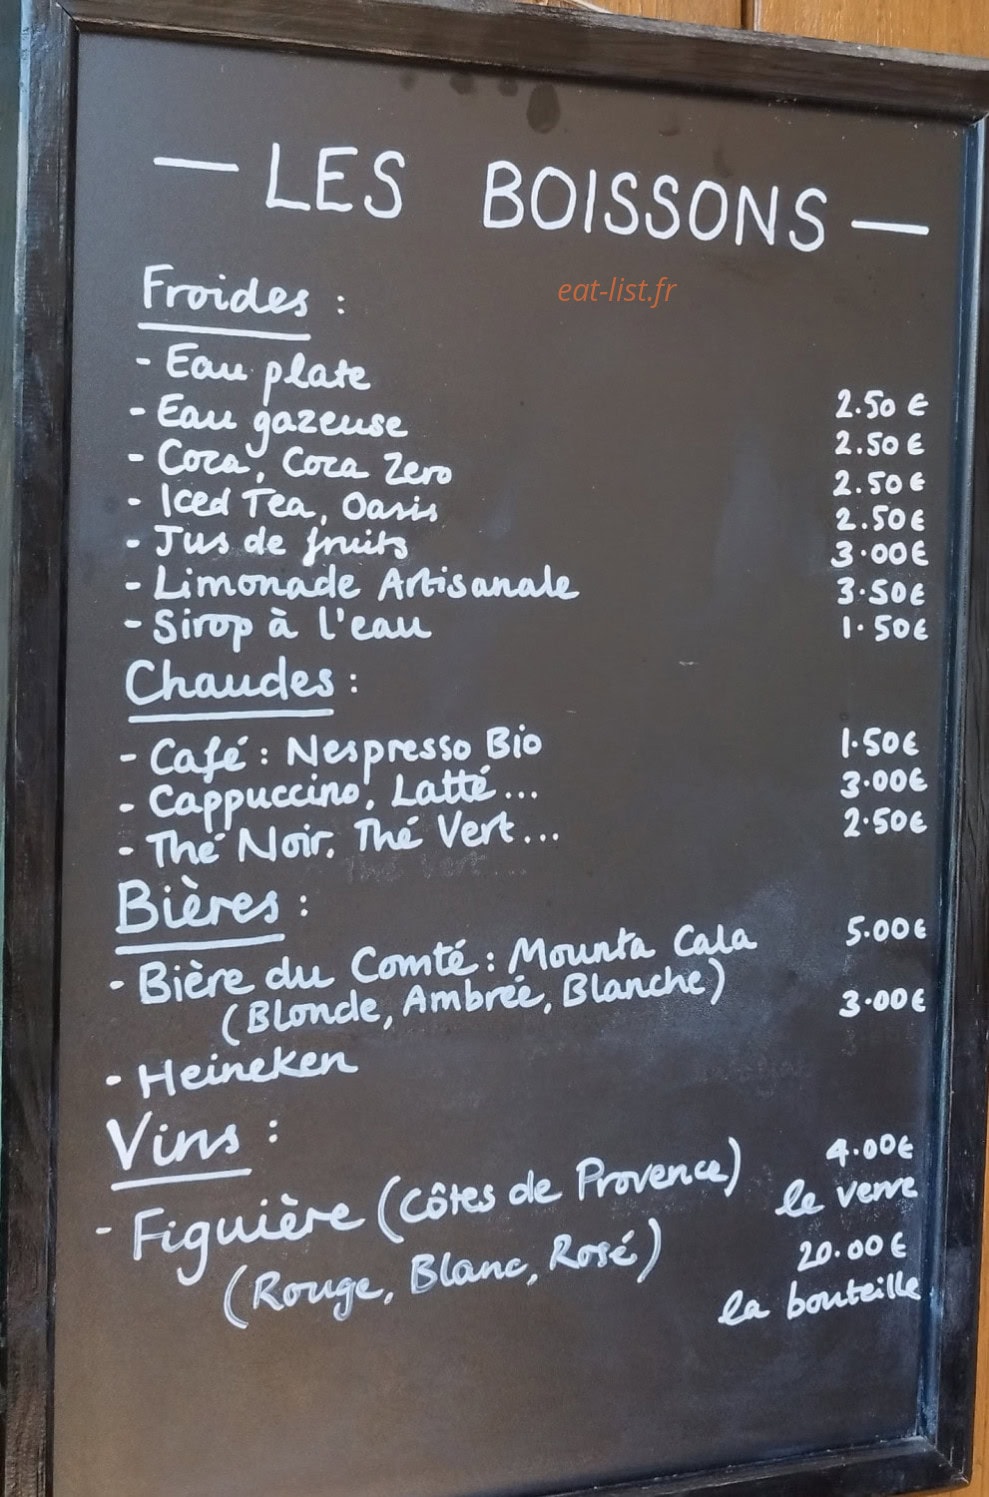 — LES BOISSONS —
eat-list.fr
Froides :
- Eau plate 2.50 €
- Eau gazeuse 2.50 €
- Coca, Coca Zero 2.50 €
- Iced Tea, Oasis 2.50 €
- Jus de fruits 3.00 €
- Limonade Artisanale 3.50 €
- Sirop à l'eau 1.50 €
Chaudes :
- Café : Nespresso Bio 1.50 €
- Cappuccino, Latté ... 3.00 €
- Thé Noir, Thé Vert ... 2.50 €
Bières :
- Bière du Comté : Mounta Cala 5.00 €
(Blonde, Ambrée, Blanche)
- Heineken 3.00 €
Vins :
- Figuière (Côtes de Provence) 4.00 €
le verre
(Rouge, Blanc, Rosé) 20.00 €
la bouteille